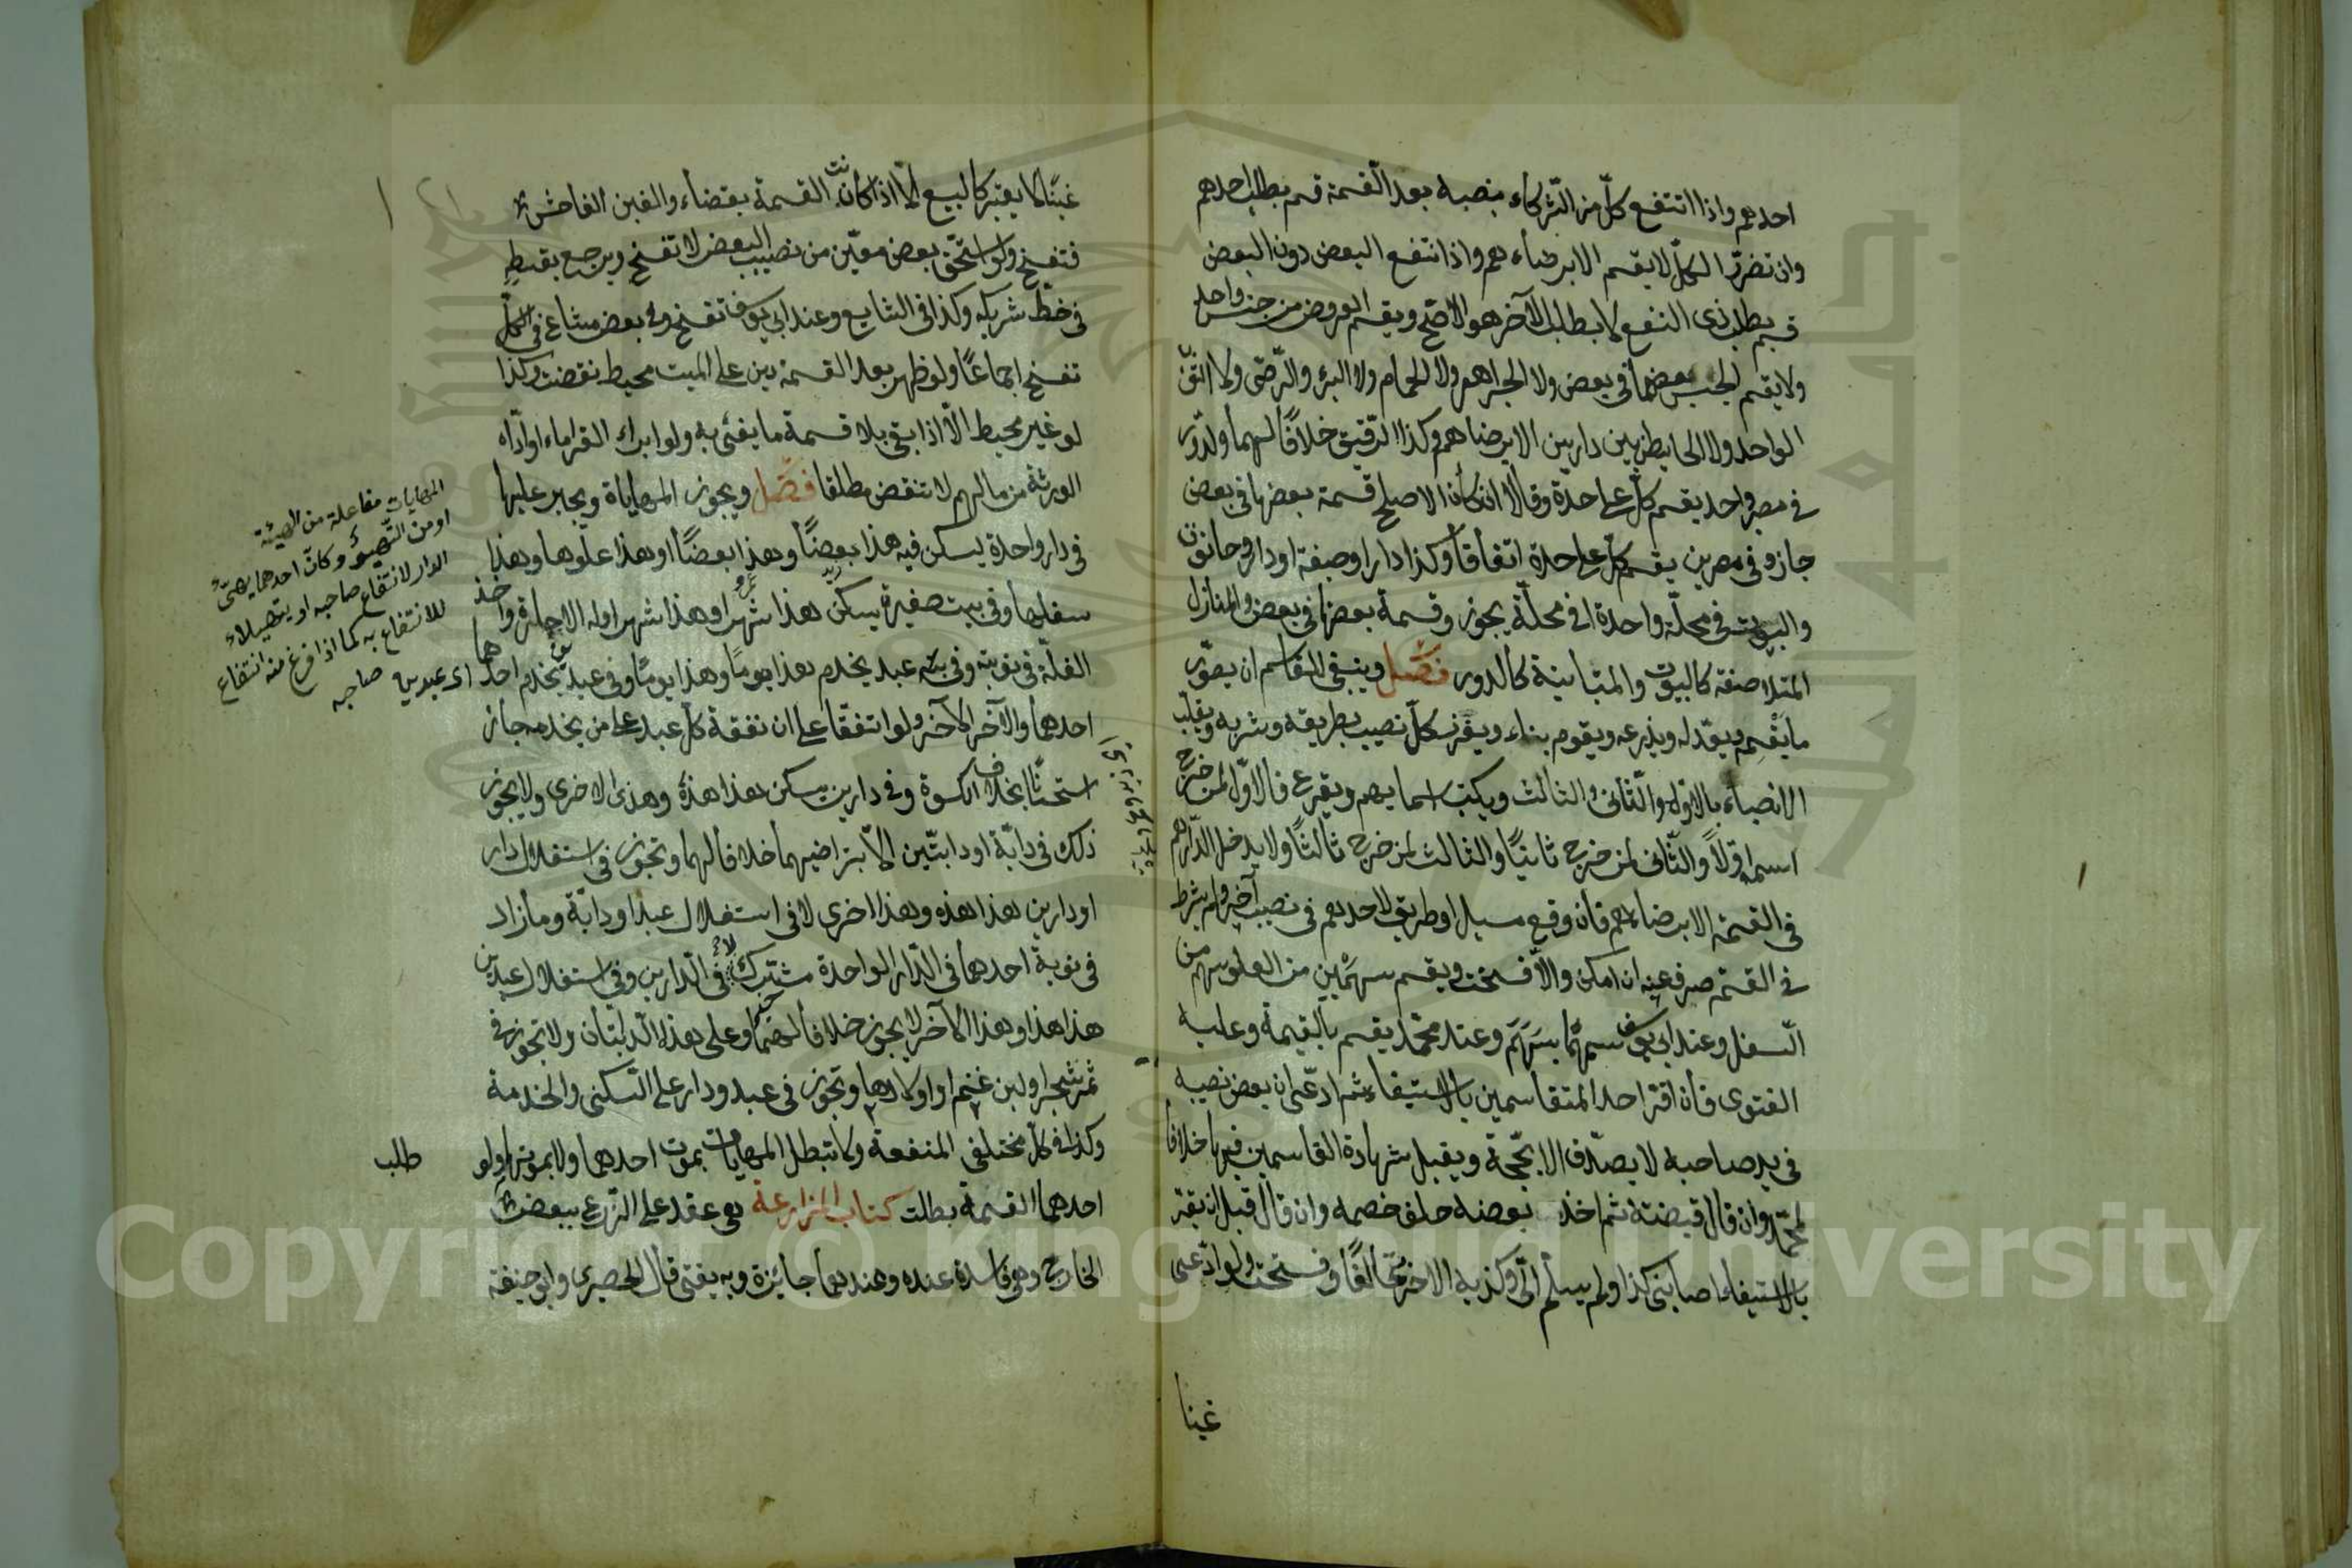 احدهم واذا انتفع كلّ من الشّركاء بنصيبه بعد القسمة قسم بطلب احدهم
وان تضرّر الكلّ لا يقسم الا برضاءهم واذا انتفع البعض دون البعض
قسم بطلب ذى النفع لا بطلب الآخر هو الاصّح ويقسم العروض من جنس واحد
ولا يقسم الجنسين بعضهما فى بعض ولا الجواهر ولا الحمام ولا البئر والرّحى ولا الثوب
الواحد ولا الحايط بين دارين الا برضاهم وكذا الرّقيق خلافًا لهما ودور
فى مصر واحد يقسم كلّ على حدة وقالا ان كان الاصلح قسمة بعضها فى بعض
جاز وفى مصرين يقسم كلّ على حدة اتفاقا وكذا دار اوضيعة او دار وحانوت
والبيوت فى محلّة واحدة او فى محلّة يجوز وقسمة بعضها فى بعض والمنازل
المتلاصقة كالبيوت والمتباينة كالدور فصل وينبغى للقاسم ان يصوّر
ما يقسمه ويعدّله ويذرعه ويقوم بناءه ويفرز كلّ نصيب بطريقه وشربه ويلقّب
الانصباء بالاوّل والثّانى والثالث ويكتب اسماءهم ويقرع فالاوّل لمن خرج
اسمه اوّلًا والثّانى لمن خرج ثانيًا والثالث لمن خرج ثالثًا ولا يدخل الدّراهم
فى القسمة الا برضاءهم فان وقع مسيل اوطريق لاحدهم فى نصيب آخر ولم يشرط
فى القسمة صرف عنه ان امكن والّا فسخت ويقسم سهمين من العلو بسهم من
السّفل وعند ابى يوسف سهمًا بسهم وعند محمّد يقسم بالقيمة وعليه
الفتوى فان اقرّ احد المتقاسمين بالاستيفاء ثم ادّعى ان بعض نصيبه
فى يد صاحبه لا يصدّق الا بحجّة ويقبل شهادة القاسمين فيها خلافا
لمحمّد وان قال قبضته ثم اخذ بعضه حلف خصمه وان قال قبل ان يقرّ
بالاستيفاء اصابنى كذا ولم يسلّم الىّ وكذبه الاخر تحالفا وفسخت ولو ادّعى
غبنا
غبنًا لا يعتبر كالبيع الّا اذا كانت القسمة بقضاء والغبن الفاحش
فتفسخ ولو استحقّ بعض معيّن من نصيب البعض لا تفسخ ويرجع بقسطه
فى حظّ شريكه وكذا فى الشايع وعند ابى يوسف تفسخ وفى بعض مشاع فى الكلّ
تفسخ اجماعًا ولو ظهر بعد القسمة دين على الميت محيط نقضت وكذا
لو غير محيط الّا اذا بقى بلا قسمة ما يفى به ولو ابراء الغرماء او ادّاه
الورثة من مالهم لا تنقض مطلقا فصل ويجوز المهاياة ويجبر عليها
فى دار واحدة يسكن فيه هذا بعضًا وهذا بعضًا او هذا علوها وهذا
سفلها وفى بيت صغيرة يسكن هذا شهرا وهذا شهرا وله الاجارة واخذ
الغلّة فى نوبته وفى عبد يخدم هذا يومًا وهذا يومًا وفى عبدين يخدم احدهما
احدهما والآخر الآخر ولو اتفقا على ان نفقة كلّ عبد على من يخدمه جاز
استحسانًا بخلاف الكسوة وفى دارين يسكن هذا هذه وهذا الاخرى ولا يجوز
ذلك فى دابّة او دابتّين الّا بتراضيهما خلافا لهما وتجوز فى استغلال دار
او دارين هذا هذه وهذا اخرى لا فى استغلال عبد او دابة وما زاد
فى نوبة احدهما فى الدّار الواحدة مشترك لا فى الدّارين وفى استغلال عبدين
هذا هذا وهذا الآخر لا يجوز خلافا لهما وعلى هذا الدّابتان ولا تجوز فى
ثمر شجر او لبن غنم او اولادها وتجوز فى عبد ودار على السّكنى والخدمة
وكذا فى كلّ مختلفى المنفعة ولا تبطل المهايات بموت احدهما ولا بموتهما ولو
طلب
احدهما القسمة بطلت كتاب المزارعة هى عقد على الزّرع ببعض
الخارج وهى فاسدة عنده وعندهما جائزة وبه يفتى قال الحصيرى وابو حنيفة
المهايات مفاعلة من الهيئة
او من التّهيؤ وكانّ احدهما يهيّئ
الدار لانتفاع صاحبه او يتهيّاء
للانتفاع به كما اذا فرغ منه انتفاع
صاحبه
اى عبدين